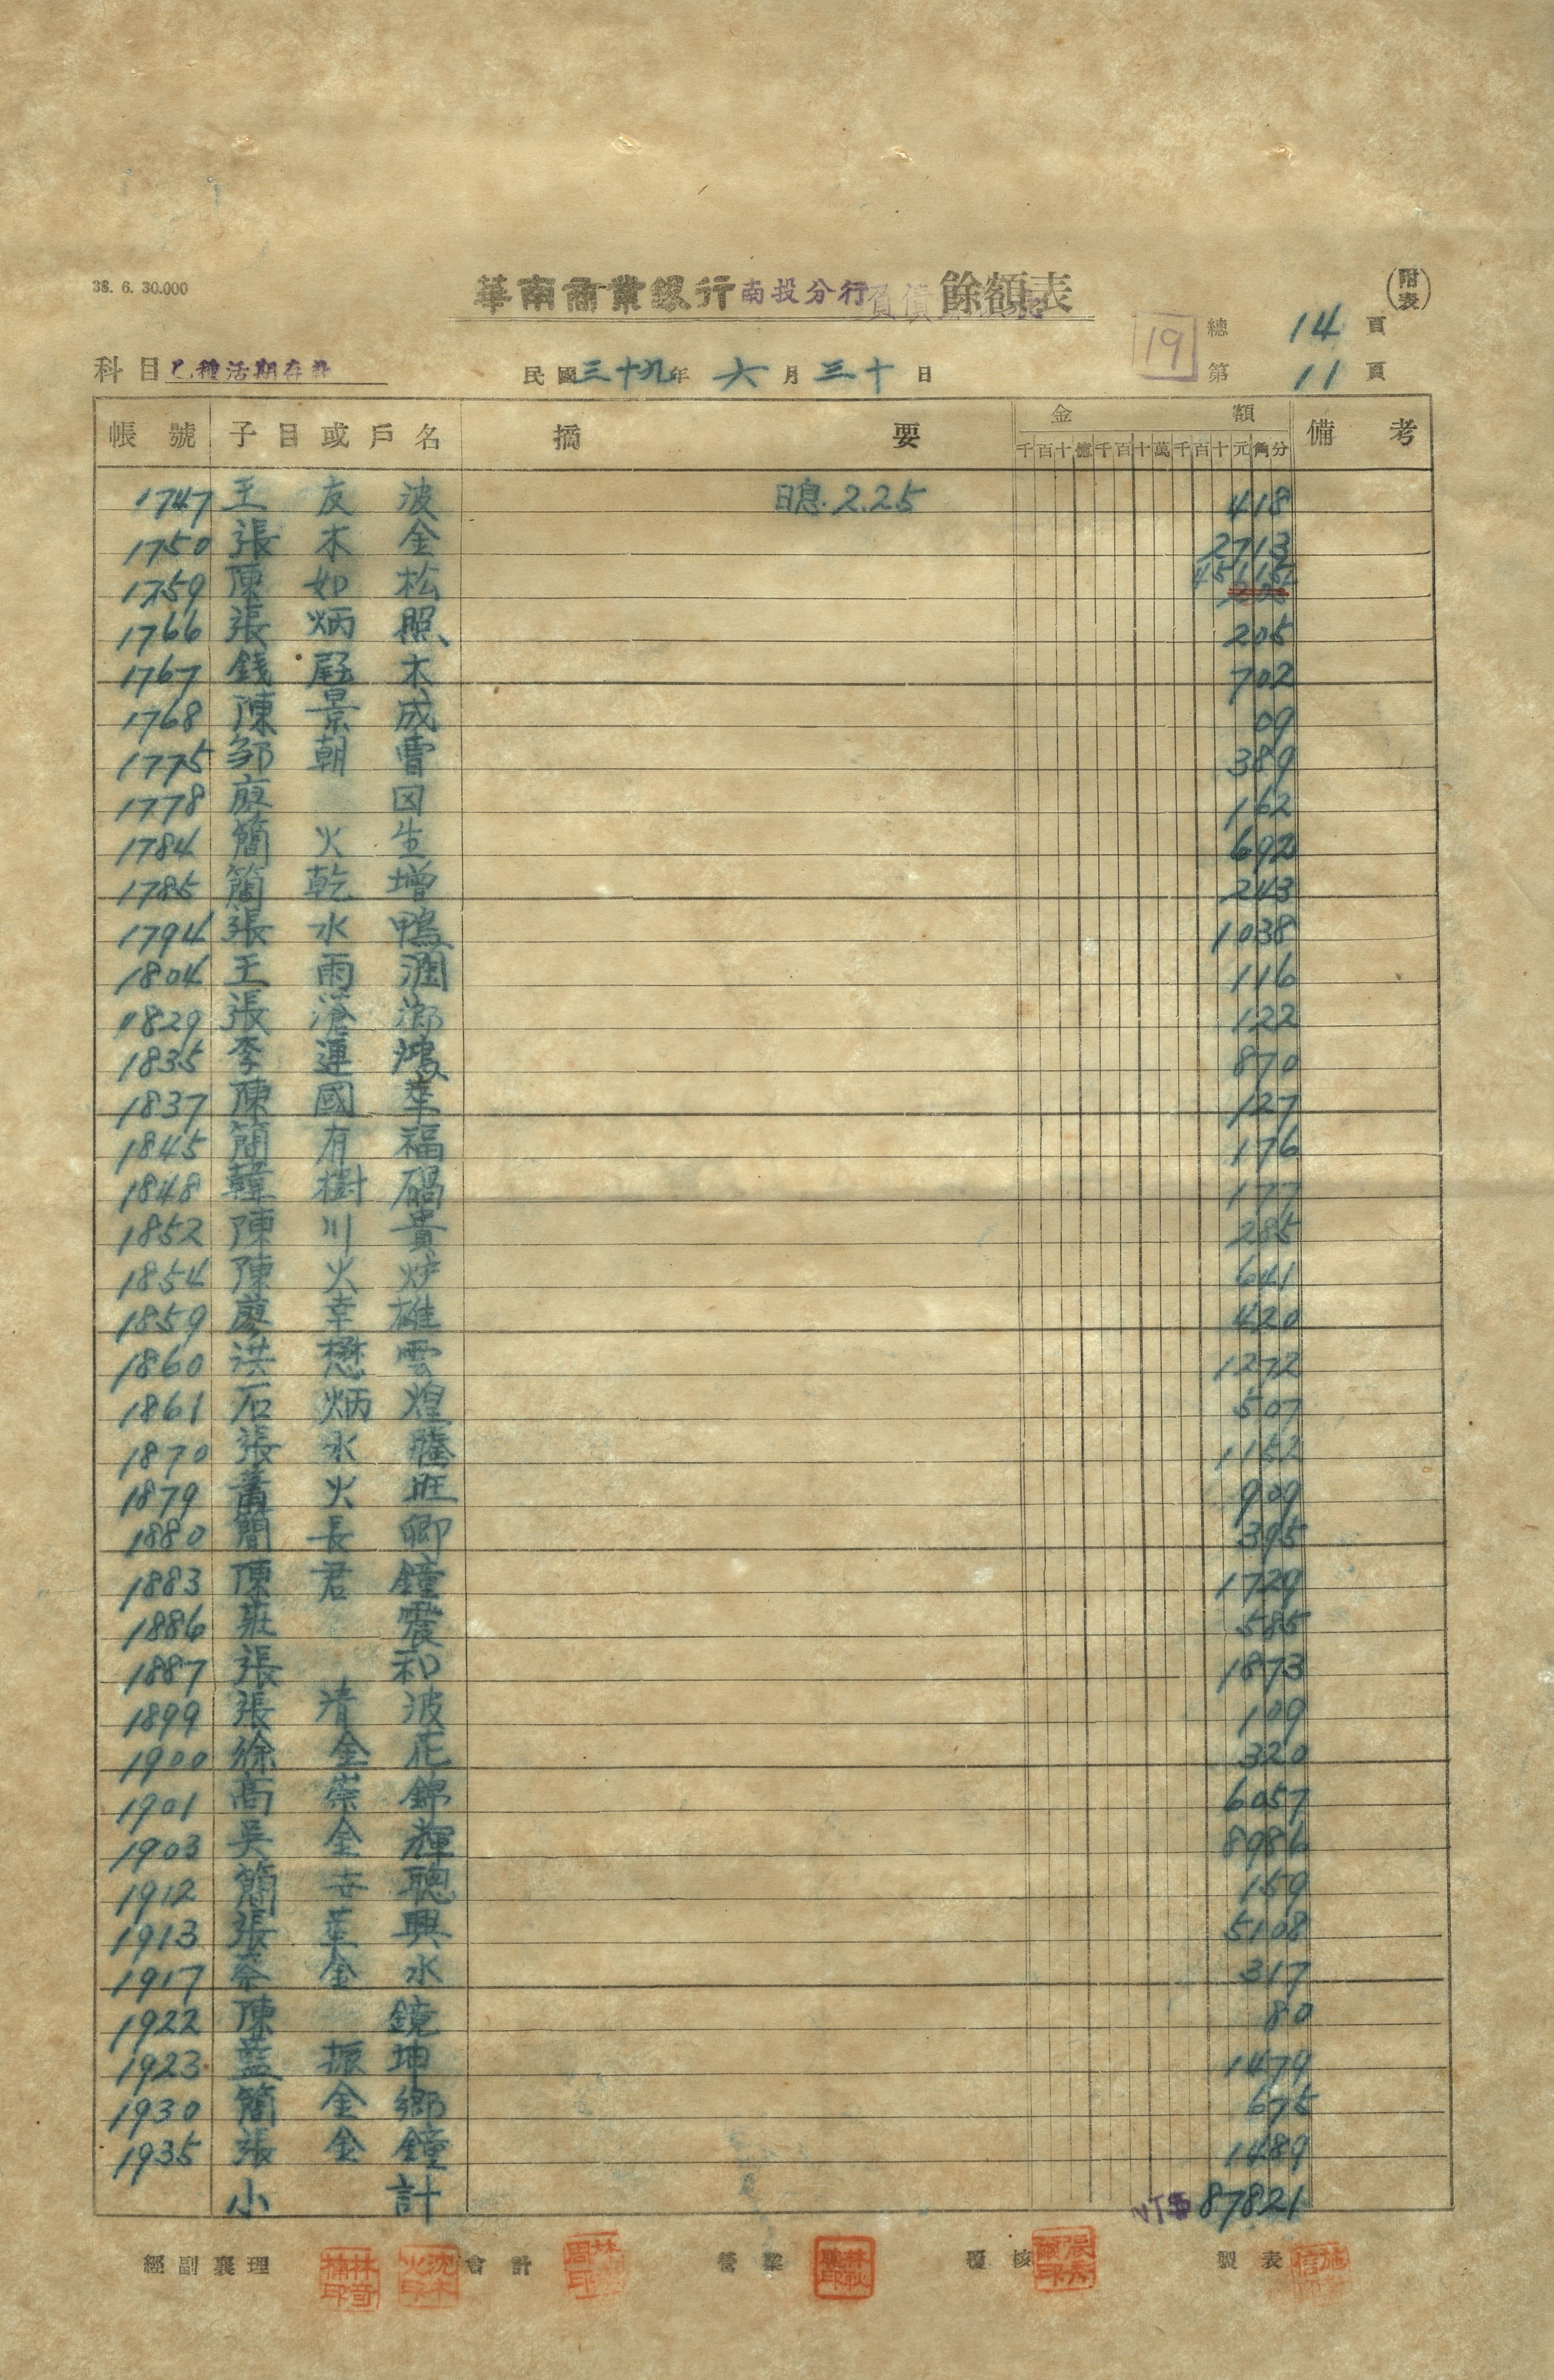 38. 6. 30.000
華南商業銀行南投分行負債餘額表
附表
19
總 14 頁
科目 乙種活期存款 民國三十九年 六月三十日 第 11 頁
帳號 子目或戶名 摘要 金額 備考
千百十億千百十萬千百十元角分
1747 王友波 日息.2.25 418
1750 張木金 2713
1759 陳如松
1766 張炳照 205
1767 錢木 702
1768 陳景成 09
1775 鄒朝 389
1778 廖 162
1784 簡火生 692
1785 簡乾增 243
1794 張水鴨 1038
1804 王雨潤 116
1829 張滄 122
1835 李運鴻 870
1837 陳國華 127
1845 簡有福 176
1848 韓樹 177
1852 陳川貴 285
1854 陳火炉 641
1859 廖幸雄 420
1860 洪懋雲 1272
1861 石炳煌 507
1870 張水 1152
1879 蕭火旺 909
1880 簡長卿 395
1883 陳君鐘 1729
1886 莊震 585
1887 張和 1873
1899 張清波 109
1900 徐金正 320
1901 高崇錦 6057
1903 吳金輝 8986
1912 簡聰 159
1913 張華興 5108
1917 蔡金水 317
1922 陳鏡 80
1923 藍振坤 1479
1930 簡金鄉 675
1935 張金鐘 1489
小計 NT$ 87821
經副襄理 會計 營業 覆核 製表